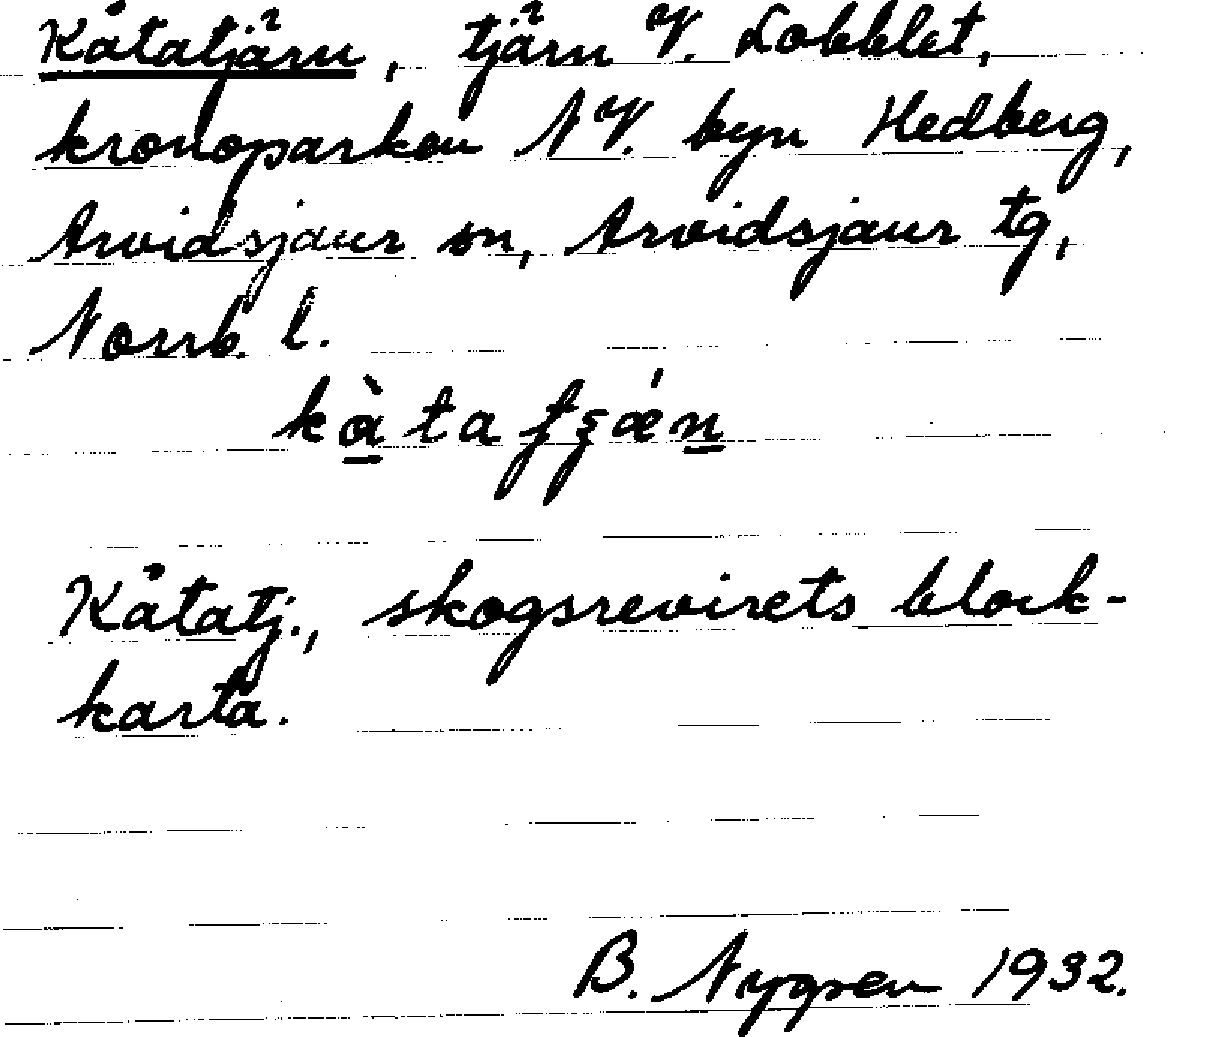 Kåtatjärn, tjärn V. Lobblet,
kronoparken NV. byn Hedberg,
Arvidsjaur sn, Arvidsjaur tg,
Norrb. l.
Kåtatj., skogsrevirets block-
karta.
B. Nygren 1932.